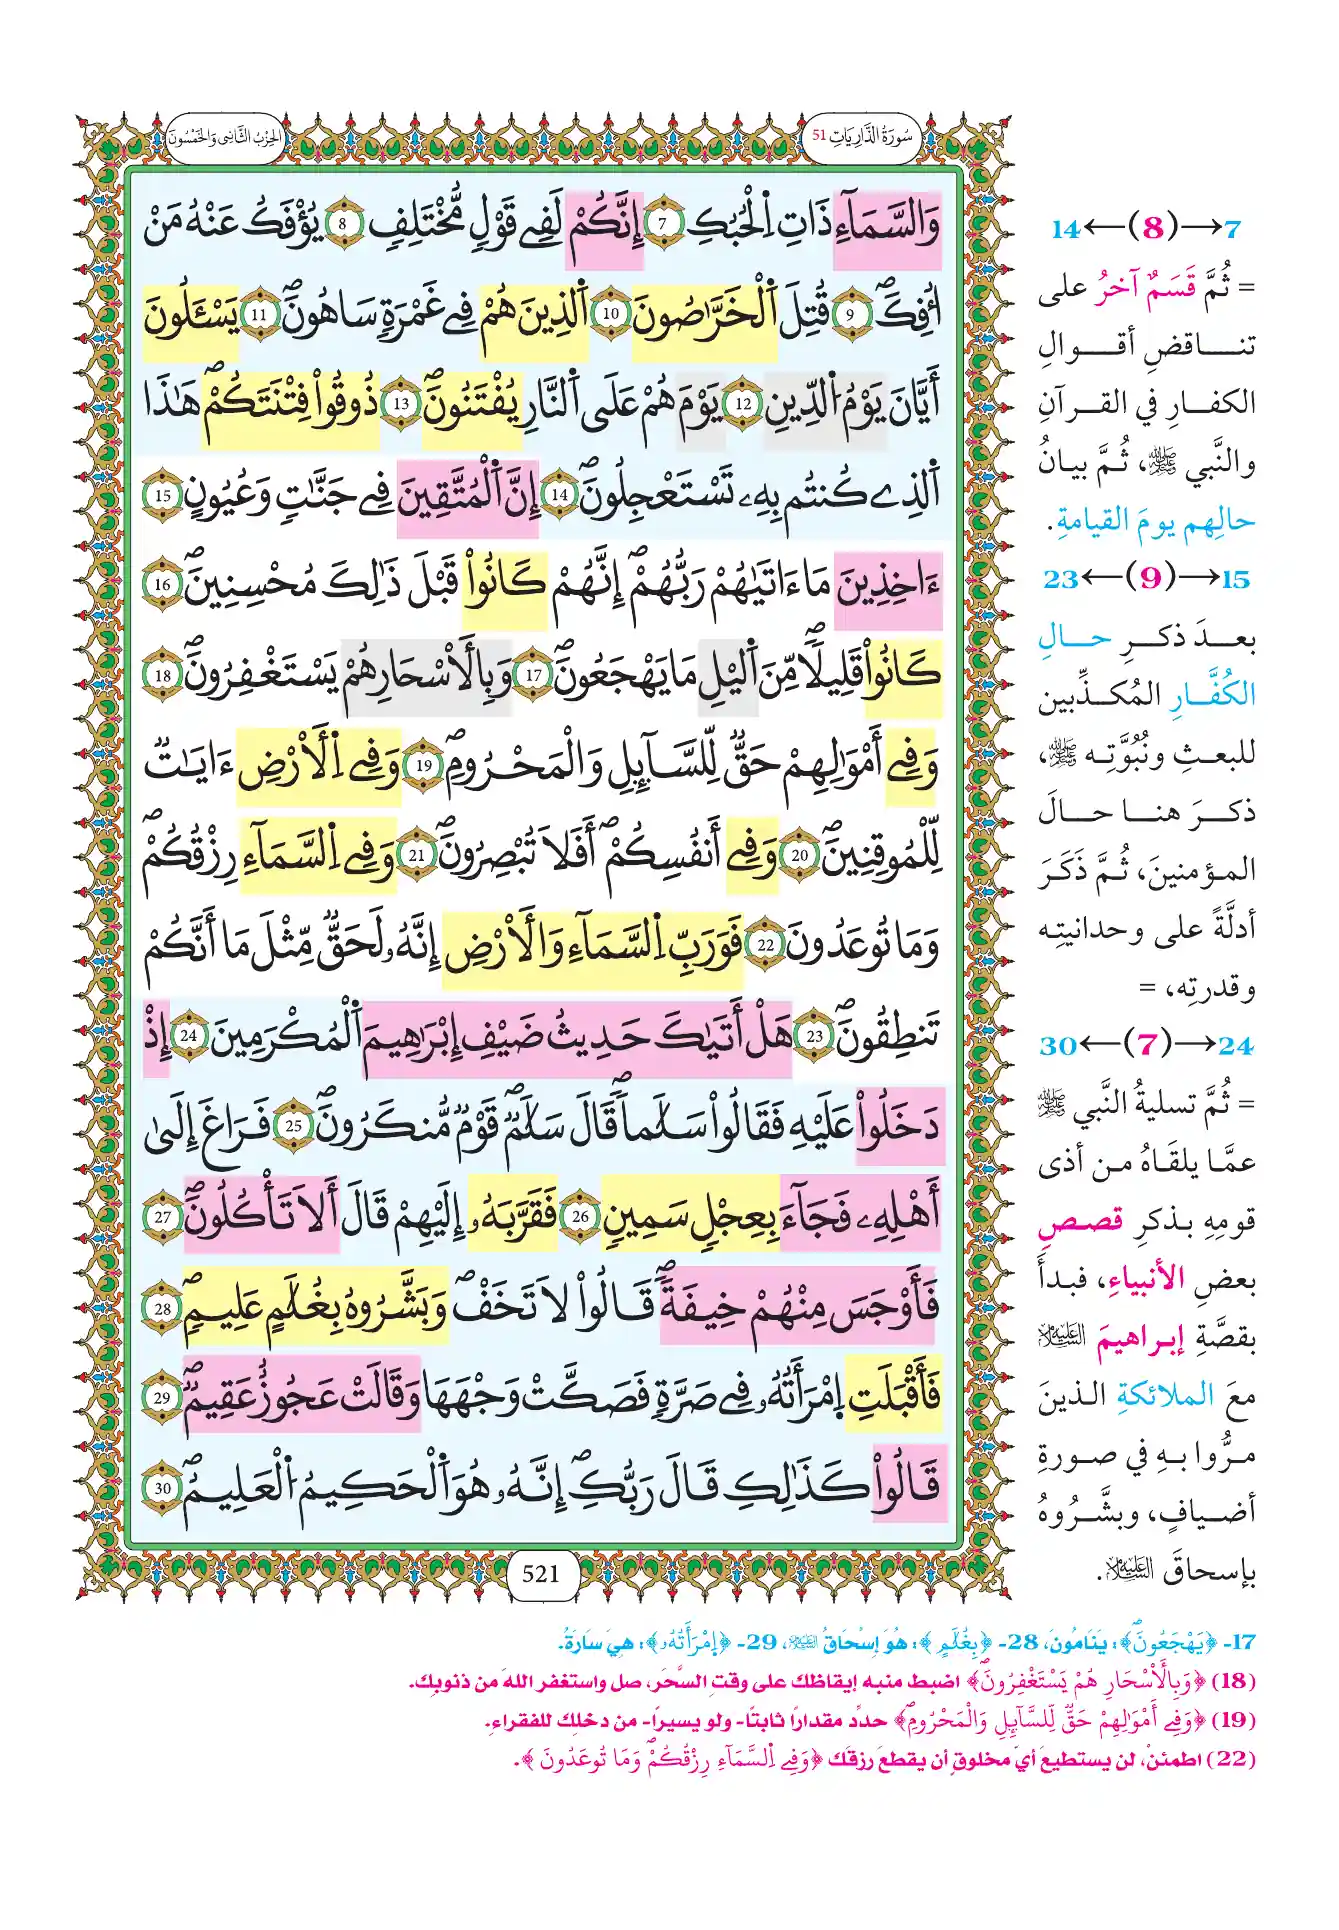 سُورَةُ الذَّارِيَاتِ 51
الحِزْبُ الثَّانِي وَالخَمْسُونَ
وَالسَّمَآءِ ذَاتِ اِ۬لْحُبُكِ 7 إِنَّكُمْ لَفِے قَوْلٖ مُّخْتَلِفٖ 8 يُؤْفَكُ عَنْهُ مَنْ
ا۟فِكَۖ 9 قُتِلَ اَ۬لْخَرَّٰصُونَ 10 اَ۬لذِينَ هُمْ فِے غَمْرَةٖ سَاهُونَۖ 11 يَسْـَٔلُونَ
أَيَّانَ يَوْمُ اُ۬لدِّينِ 12 يَوْمَ هُمْ عَلَى اَ۬لنَّارِ يُفْتَنُونَۖ 13 ذُوقُواْ فِتْنَتَكُمْۖ هَٰذَا
اَ۬لذِے كُنتُم بِهِۦ تَسْتَعْجِلُونَۖ 14 إِنَّ اَ۬لْمُتَّقِينَ فِے جَنَّٰتٖ وَعُيُونٍ 15
ءَاخِذِينَ مَا ءَاتَيٰهُمْ رَبُّهُمْۖ إِنَّهُمْ كَانُواْ قَبْلَ ذَٰلِكَ مُحْسِنِينَۖ 16
كَانُواْ قَلِيلاٗ مِّنَ اَ۬ليْلِ مَا يَهْجَعُونَۖ 17 وَبِالْأَسْحَارِ هُمْ يَسْتَغْفِرُونَۖ 18
وَفِے أَمْوَٰلِهِمْ حَقّٞ لِّلسَّآئِلِ وَالْمَحْرُومِۖ 19 وَفِے اِ۬لْأَرْضِ ءَايَٰتٞ
لِّلْمُوقِنِينَۖ 20 وَفِے أَنفُسِكُمْۖ أَفَلَا تُبْصِرُونَۖ 21 وَفِے اِ۬لسَّمَآءِ رِزْقُكُمْۖ
وَمَا تُوعَدُونَ 22 فَوَرَبِّ اِ۬لسَّمَآءِ وَالْأَرْضِ إِنَّهُۥ لَحَقّٞ مِّثْلَ مَا أَنَّكُمْ
تَنطِقُونَۖ 23 هَلْ أَتَيٰكَ حَدِيثُ ضَيْفِ إِبْرَٰهِيمَ اَ۬لْمُكْرَمِينَ 24 إِذْ
دَخَلُواْ عَلَيْهِ فَقَالُواْ سَلَٰماٗۖ قَالَ سَلَٰمٞ قَوْمٞ مُّنكَرُونَۖ 25 فَرَاغَ إِلَىٰ
أَهْلِهِۦ فَجَآءَ بِعِجْلٖ سَمِينٖ 26 فَقَرَّبَهُۥ إِلَيْهِمْ قَالَ أَلَا تَأْكُلُونَۖ 27
فَأَوْجَسَ مِنْهُمْ خِيفَةٗۖ قَالُواْ لَا تَخَفْۖ وَبَشَّرُوهُ بِغُلَٰمٍ عَلِيمٖۖ 28
فَأَقْبَلَتِ اِ۪مْرَأَتُهُۥ فِے صَرَّةٖ فَصَكَّتْ وَجْهَهَا وَقَالَتْ عَجُوزٌ عَقِيمٞۖ 29
قَالُواْ كَذَٰلِكِ قَالَ رَبُّكِۖ إِنَّهُۥ هُوَ اَ۬لْحَكِيمُ اُ۬لْعَلِيمُۖ 30
521
7→(8)←14
= ثُمَّ قَسَمٌ آخرُ على
تناقضِ أقوالِ
الكفارِ في القرآنِ
والنَّبي ﷺ، ثُمَّ بيانُ
حالِهم يومَ القيامةِ.
15→(9)←23
بعدَ ذكرِ حالِ
الكُفَّارِ المُكذِّبين
للبعثِ ونُبُوَّتِه ﷺ،
ذكرَ هنا حالَ
المؤمنينَ، ثُمَّ ذَكَرَ
أدلَّةً على وحدانيتِه
وقدرتِه، =
24→(7)←30
= ثُمَّ تسليةُ النَّبي ﷺ
عمَّا يلقَاهُ من أذى
قومِهِ بذكرِ قصصِ
بعضِ الأنبياءِ، فبدأَ
بقصَّةِ إبراهيمَ عليه السلام
معَ الملائكةِ الذينَ
مرُّوا بهِ في صورةِ
أضيافٍ، وبشَّرُوهُ
بإسحاقَ عليه السلام.
17- ﴿يَهْجَعُونَۖ﴾: يَنَامُونَ، 28- ﴿بِغُلَٰمٍ﴾: هُوَ إِسْحَاقُ عليه السلام، 29- ﴿اِ۪مْرَأَتُهُۥ﴾: هِيَ سَارَةُ.
(18) ﴿وَبِالْأَسْحَارِ هُمْ يَسْتَغْفِرُونَۖ﴾ اضبط منبه إيقاظك على وقتِ السَّحَر، صل واستغفر اللهَ من ذنوبِك.
(19) ﴿وَفِے أَمْوَٰلِهِمْ حَقّٞ لِّلسَّآئِلِ وَالْمَحْرُومِۖ﴾ حدِّد مقدارًا ثابتًا- ولو يسيرًا- من دخلِك للفقراءِ.
(22) اطمئنْ، لن يستطيعَ أيُّ مخلوقٍ أن يقطعَ رزقَك ﴿وَفِے اِ۬لسَّمَآءِ رِزْقُكُمْۖ وَمَا تُوعَدُونَ﴾.